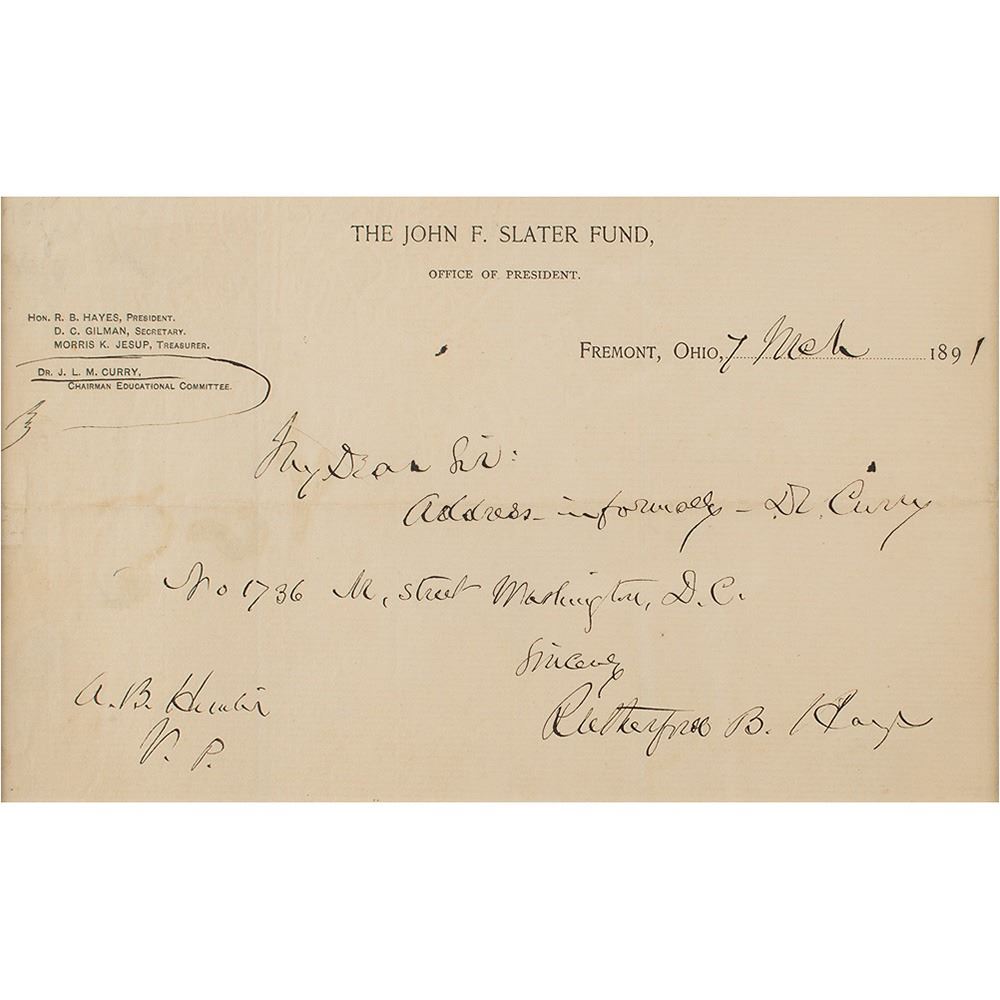 THE JOHN F. SLATER FUND,
OFFICE OF PRESIDENT.
HON. R. B. HAYES, PRESIDENT.
D. C. GILMAN, SECRETARY.
MORRIS K. JESUP, TREASURER.
DR. J. L. M. CURRY,
CHAIRMAN EDUCATIONAL COMMITTEE.
FREMONT, OHIO, 7 Mch 1891
My Dear Sir:
Address - informally - Dr. Curry
No 1736 M, street Washington, D.C.
Sincerely
Rutherford B. Hayes
A. B. Hunter
V. P.